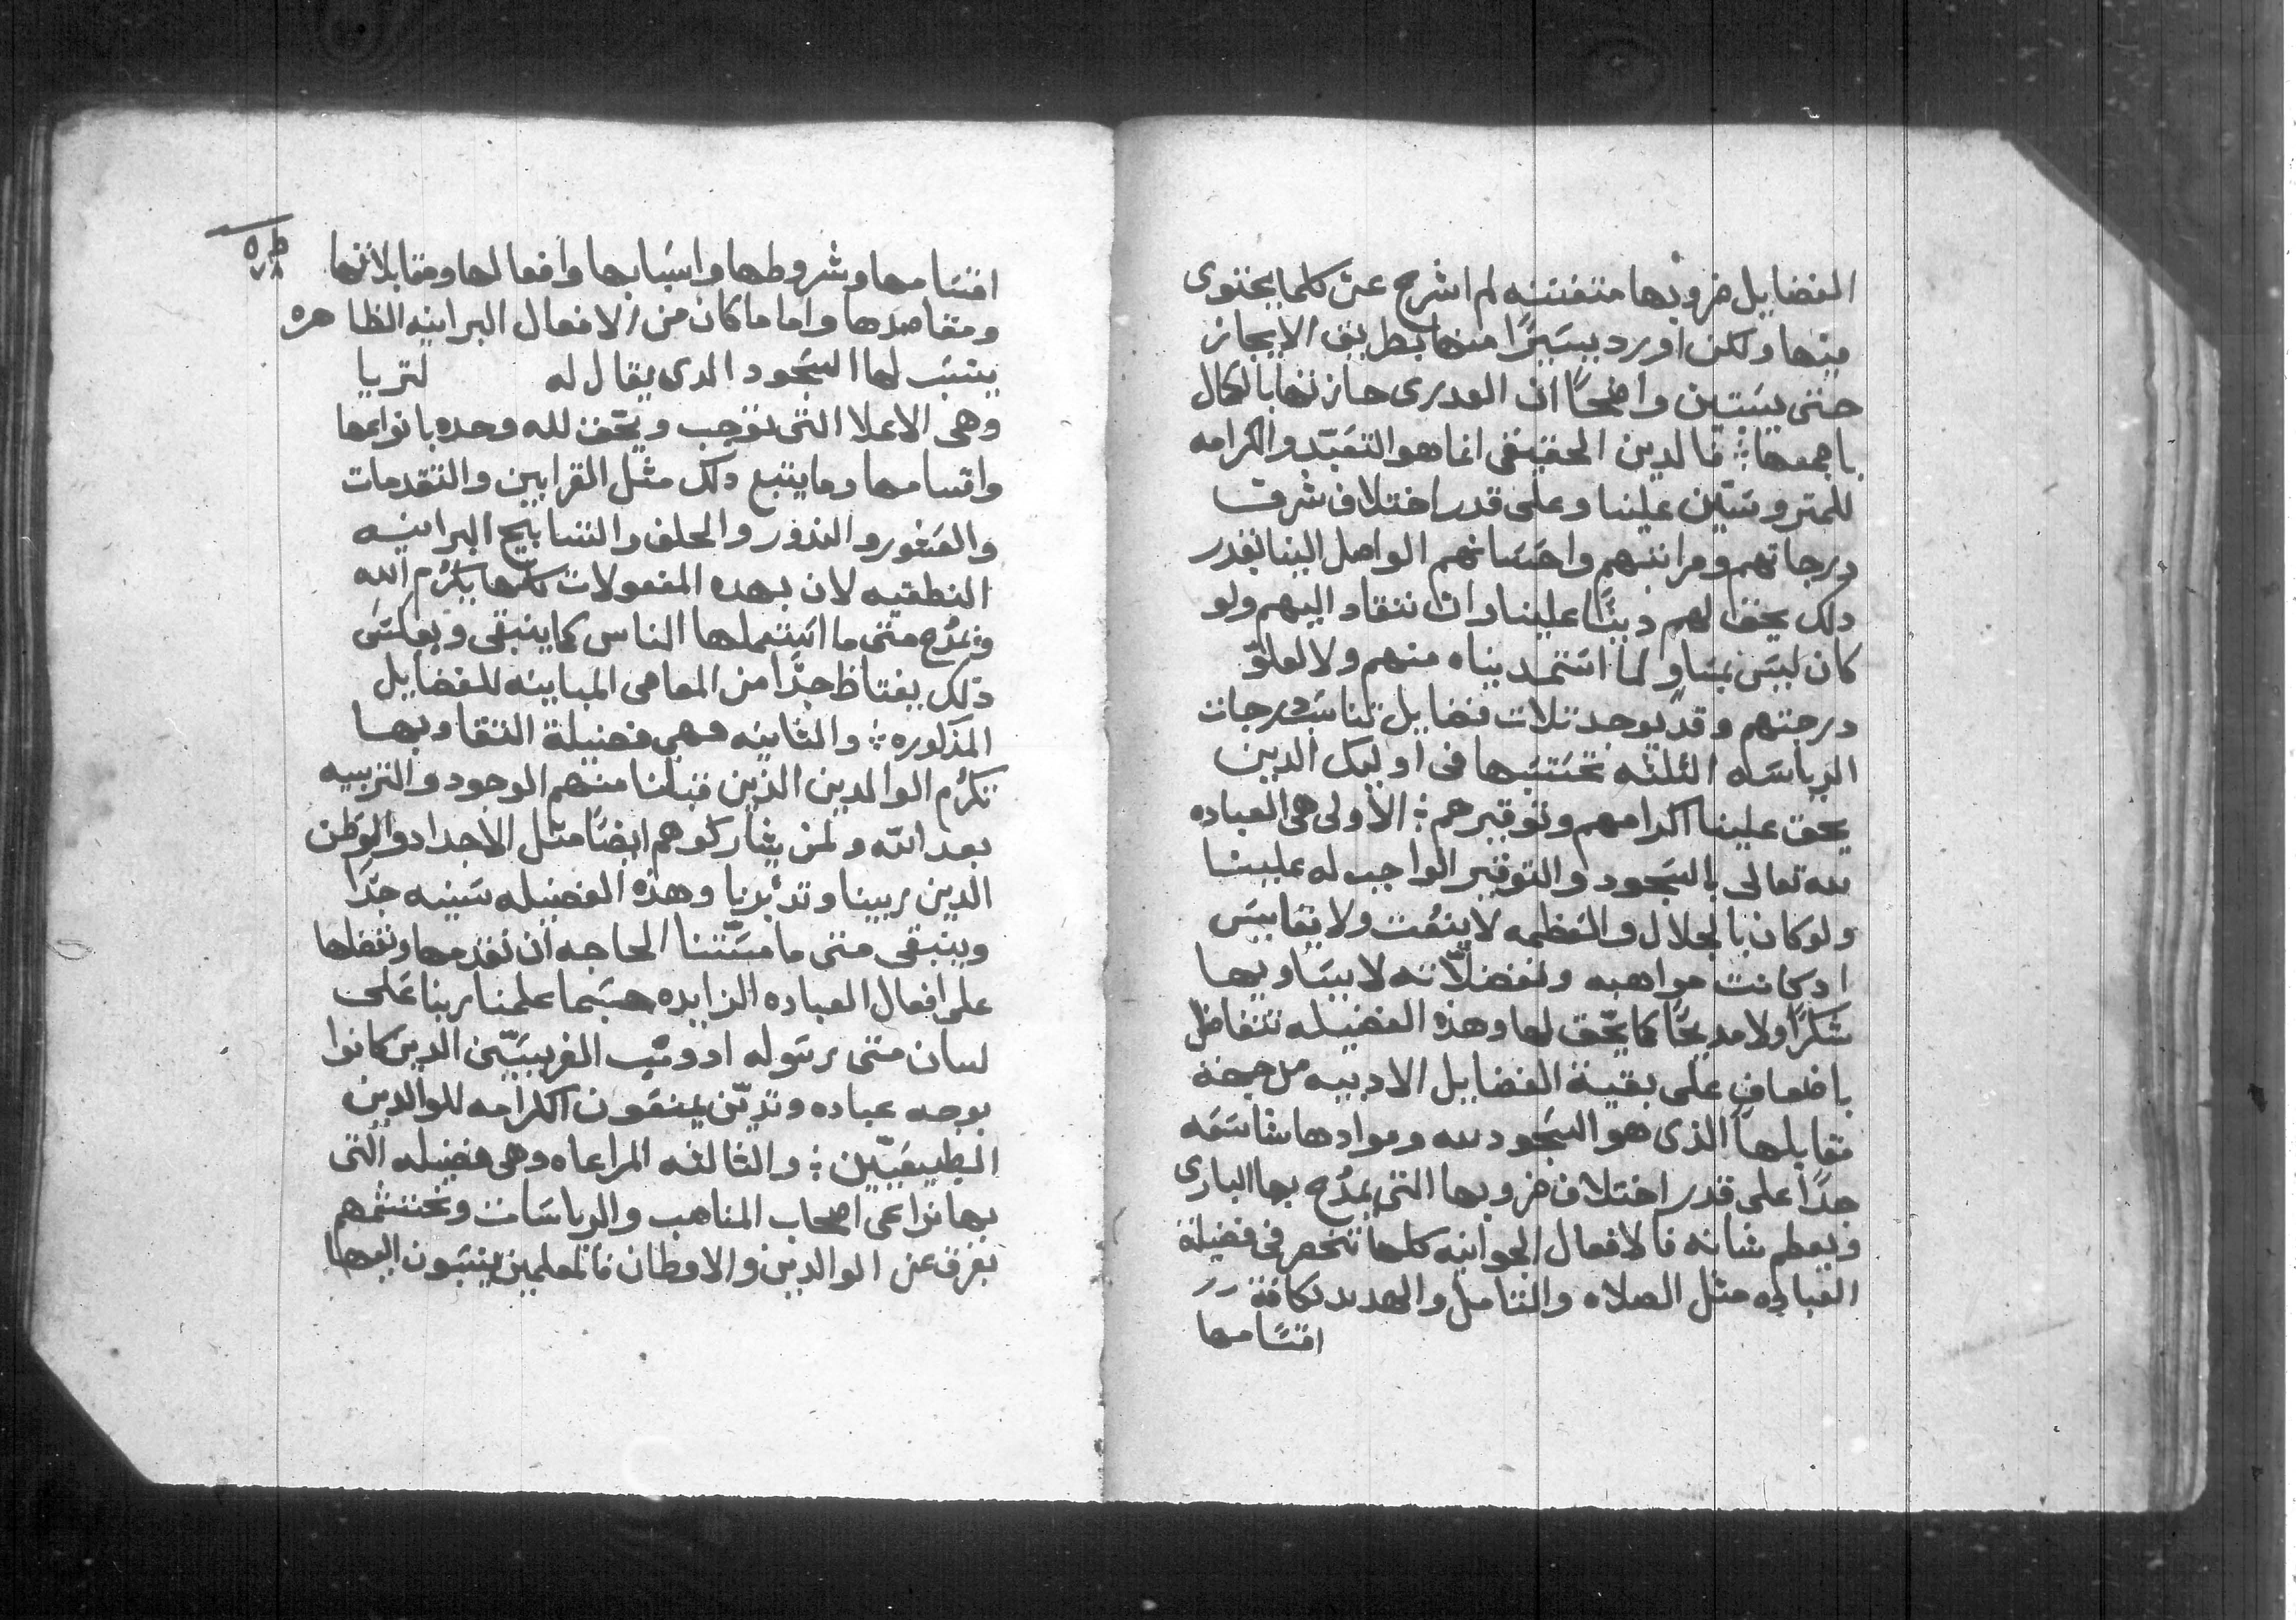 الفضايل ضروبها متفننه لم اشرح عن كلما يحتوى
منها ولكن اورد يسيرًا منها بطريق الايجاز
حتى يستبين واضحًا ان العدرى حازتها بالكمال
باجمعها ؛ فالدين الحقيقى انما هو التعبّد والكرامه
للمتروسّين علينا وعلى قدر اختلاف شرف
درجاتهم ومراتبهم واحسانهم الواصل الينا بقدر
دلك يحق لهم دينًا علينا وان ننقاد اليهم ولو
كان ليس بمساوٍ لما استمديناه منهم ولا لعلوّ
درجتهم وقد يوجد تلات فضايل تناسب درجات
الرياسه الثلثه تحتسبها فى اوليك الدين
يحق علينا اكرامهم وتوقيرهم ؛ الاولى هى العباده
لله تعالى بالسجود والتوقير الواجب له علينا
ولو كان بالجلال والعظمه لا ينعُت ولا يقاييس
اد كانت مواهبه وتفضلاته لا يساويها
شكرًا ولا مديحًا كما يحّق لها وهذه الفضيله تتفاضل
باضعافٍ على بقية الفضايل الادبيه من جهة
مقابلها الذى هو السجود لله وموادها شاسعه
جدًا على قدر اختلاف ضروبها التى يمدُح بها البارى
ويعظم شانه فالافعال الجوانيه كلها تنحصر فى فضيلة
العباده مثل الصلاه والتامل والهديد بكافة
اقسامها
اقسامها وشروطها واسبابها وافعالها ومقابلاتها
ومقاصدها واما ما كان من الافعال البرانيه الظاهره
ينسب لها السجود الدى يقال له لتريا
وهى الاعلا التى توجب ويحّق لله وحده بانواعها
واقسامها وما يتبع دلك مثل القرابين والتقدمات
والعشور والندور والحلف والتسابيح البرانيه
النطقيه لان بهده المفعولات كلها يكرُم الله
ويمدُح متى ما استعملها الناس كما ينبقى وبعكس
ذلك يغتاظ جدًا من المعاصى المباينه للفضايل
المذكوره ؛ والثانيه فهى فضيلة التقا وبها
تكرُم الوالدين الذين قبلنا منهم الوجود والتربيه
بعد الله ولمن يشاركوهم ايضًا مثل الاجداد والوطن
الدين ربينا وتدبّرنا وهذه الفضيله سنيه جدًا
وينبقى متى ما مسّتنا الحاجه ان نقدمها ونفضلها
على افعال العباده الزايده حسبما علمنا ربنا على
لسان متى رسوله اد وبّب الفريسيّين الدين كانوا
بوجه عباده وتديّن يمنعون اكرامه للوالدين
الطبيعيّين ؛ والثالثه المراعاه وهى فضيله التى
بها نراعى اصحاب المناهب والرياسات ونحتشمهم
بفرق عن الوالدين والاوطان فالمعلمين ينسبون اليها